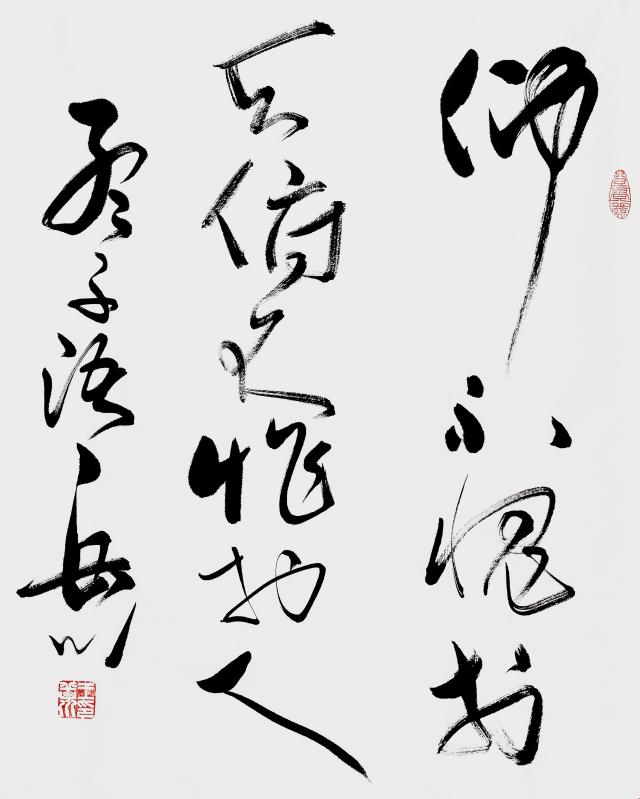 仰不愧於
天俯不怍於人
孟子语岳川